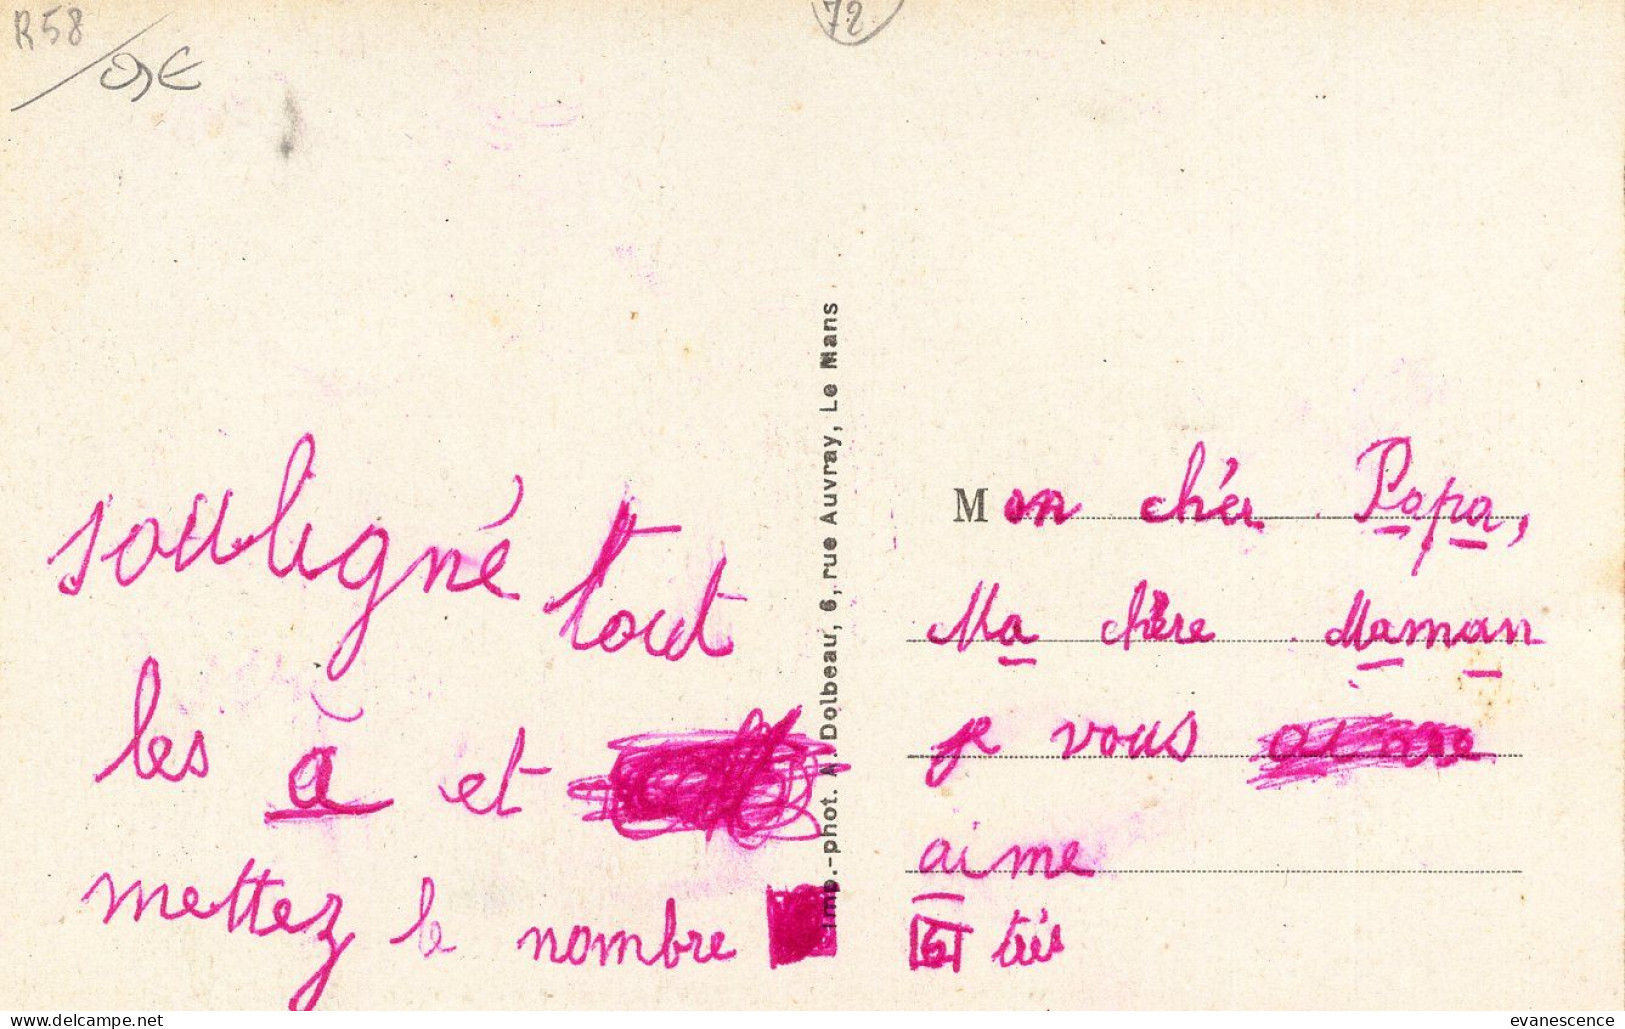 R58
72
souligné tout
les a et
mettez le nombre
Imp.-phot. A. Dolbeau, 6, rue Auvray, Le Mans
Mon chér Papa,
Ma chère Maman
je vous aime
aime
6 très
www.delcampe.net
evanescence